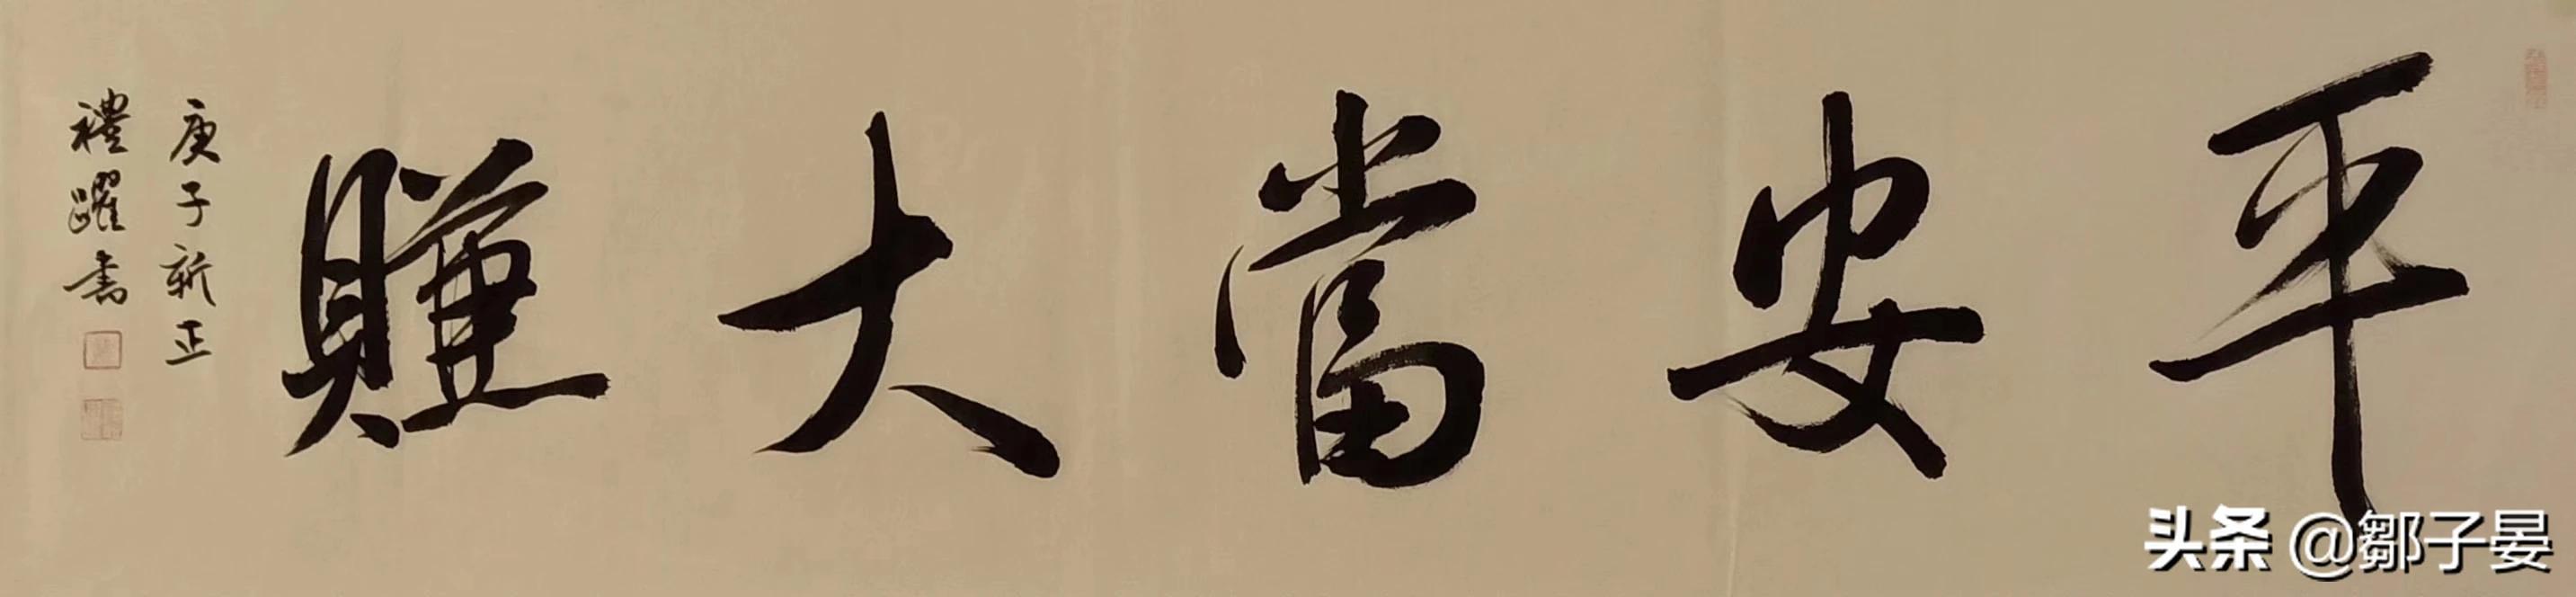 平安當大賺
庚子新正
禮躍書
头条 @鄒子晏